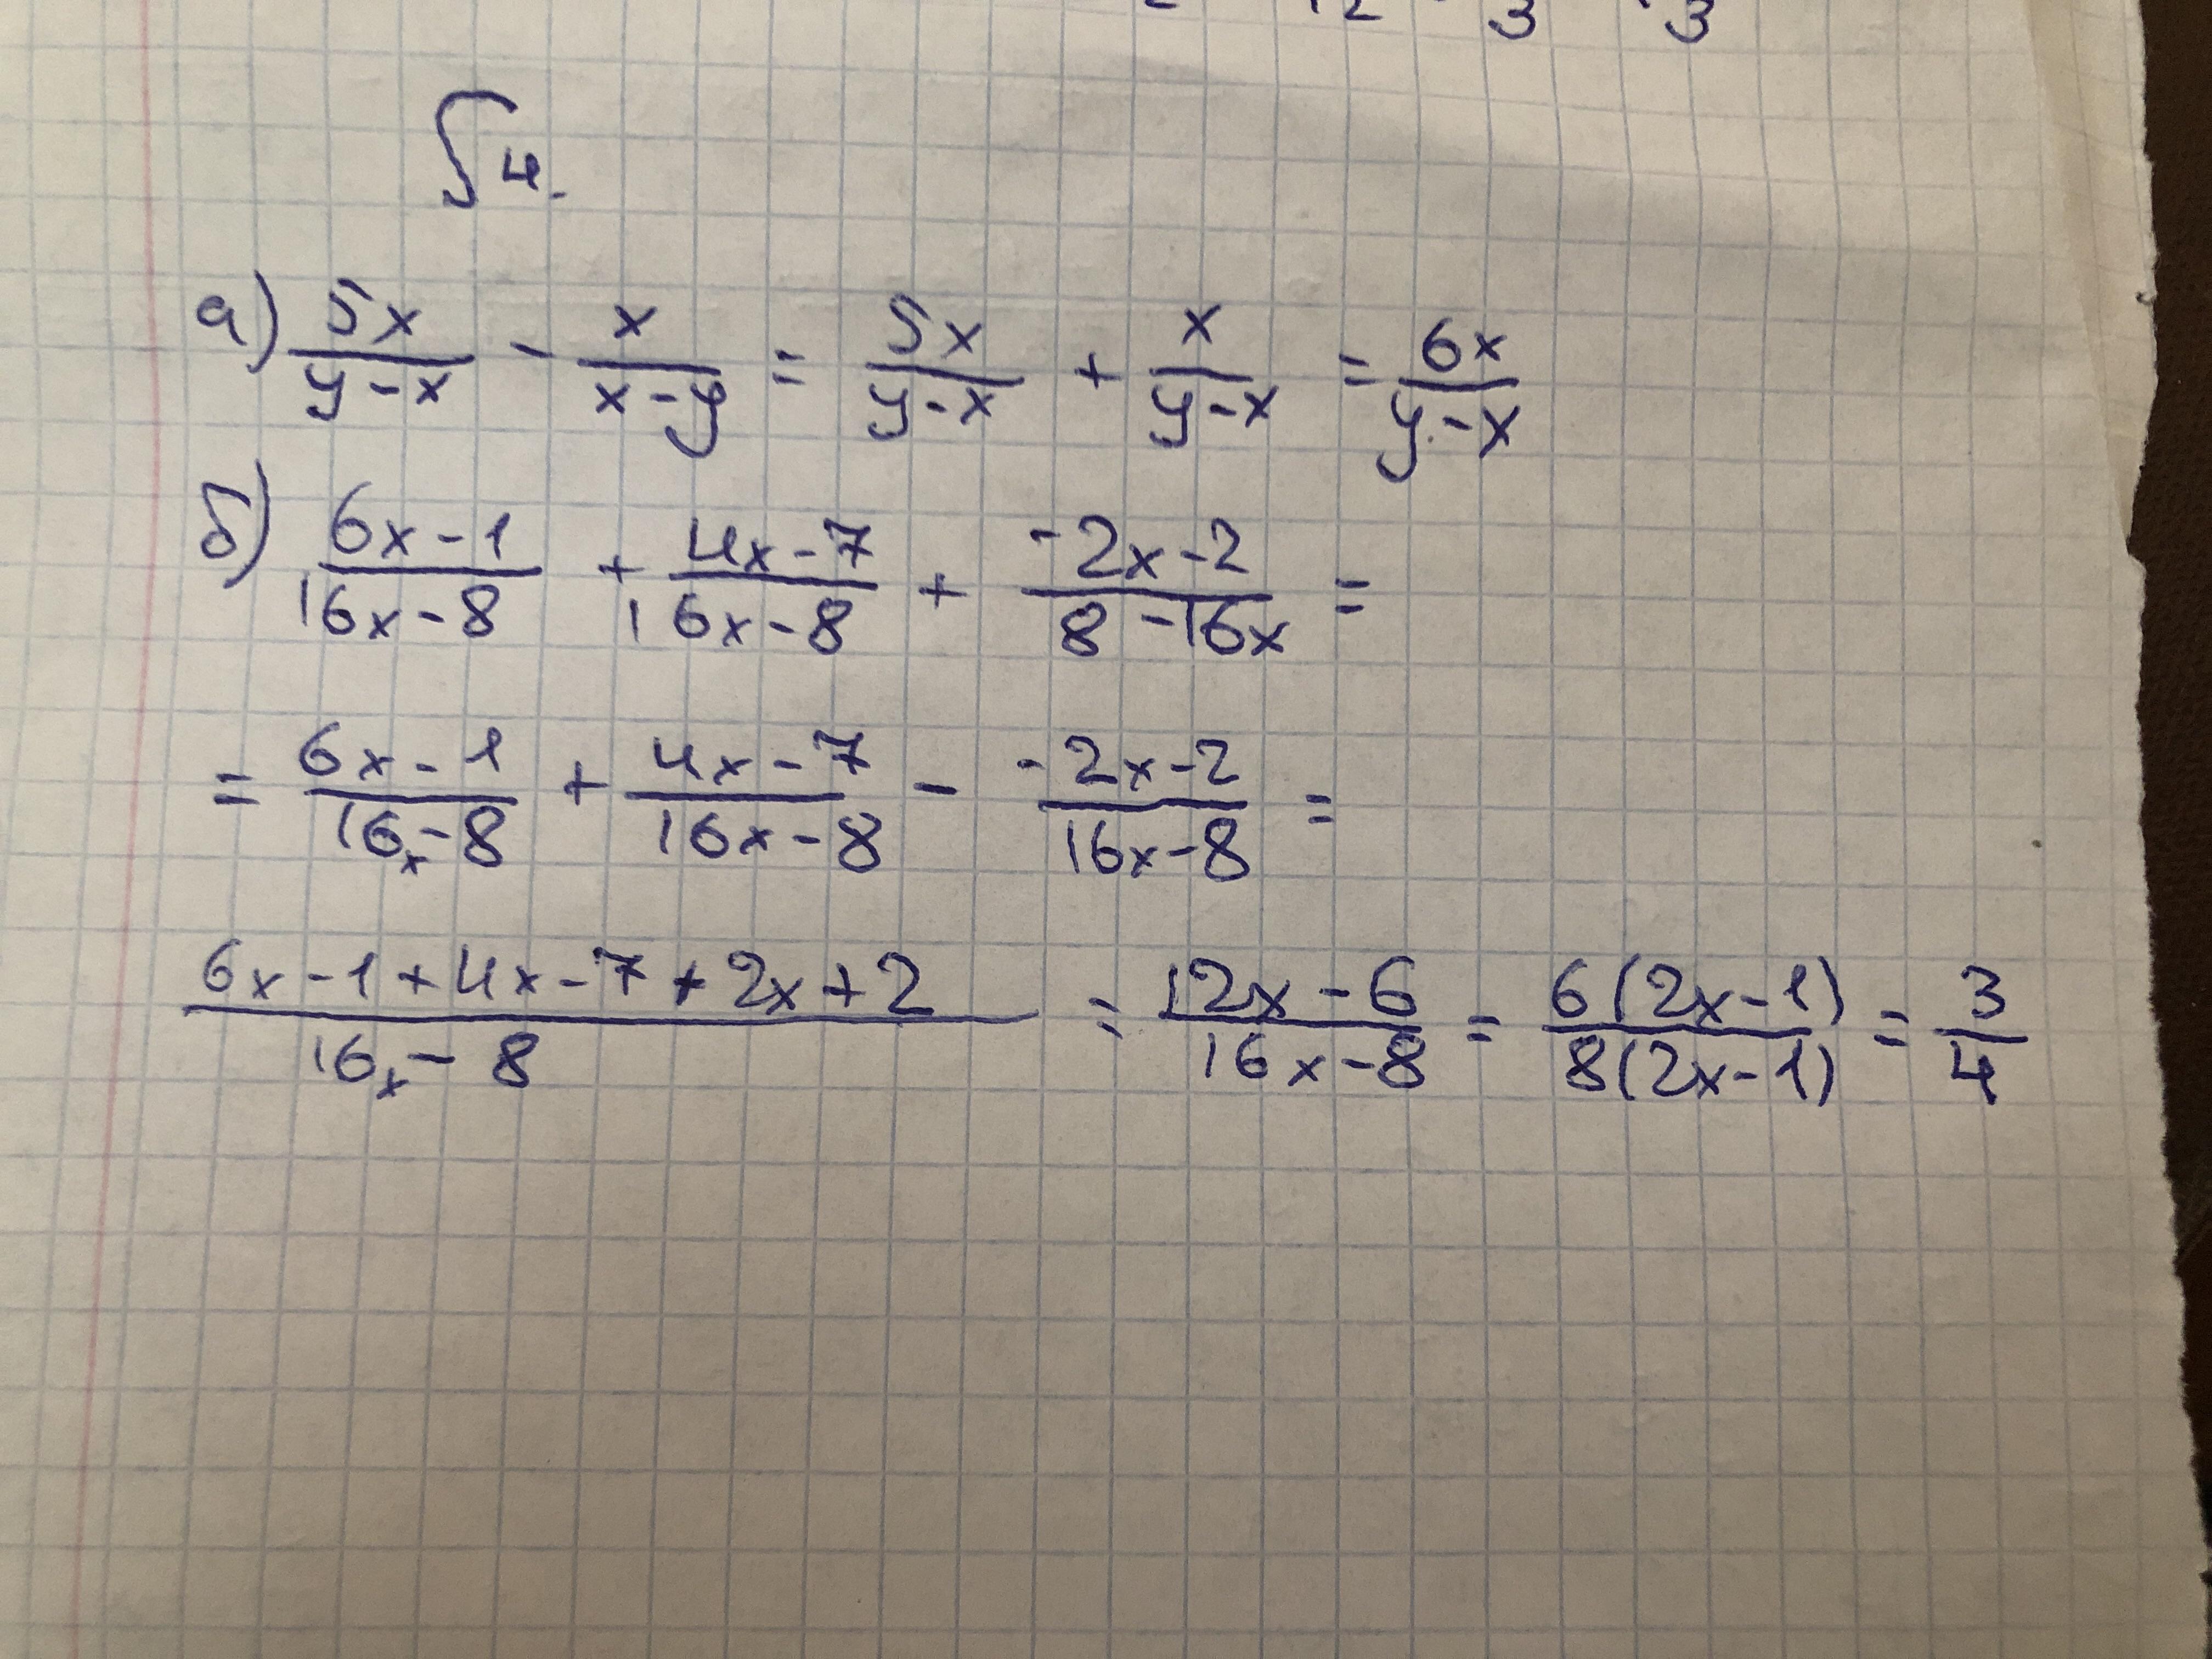 12 3 3
4.
а) 5x/(y-x) - x/(x-y) = 5x/(y-x) + x/(y-x) = 6x/(y-x)
б) (6x-1)/(16x-8) + (4x-7)/(16x-8) + (-2x-2)/(8-16x) =
= (6x-1)/(16x-8) + (4x-7)/(16x-8) - (-2x-2)/(16x-8) =
(6x-1+4x-7+2x+2)/(16x-8) = (12x-6)/(16x-8) = 6(2x-1)/8(2x-1) = 3/4